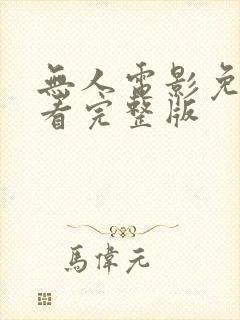 無人電影免
看完整版
馬偉元